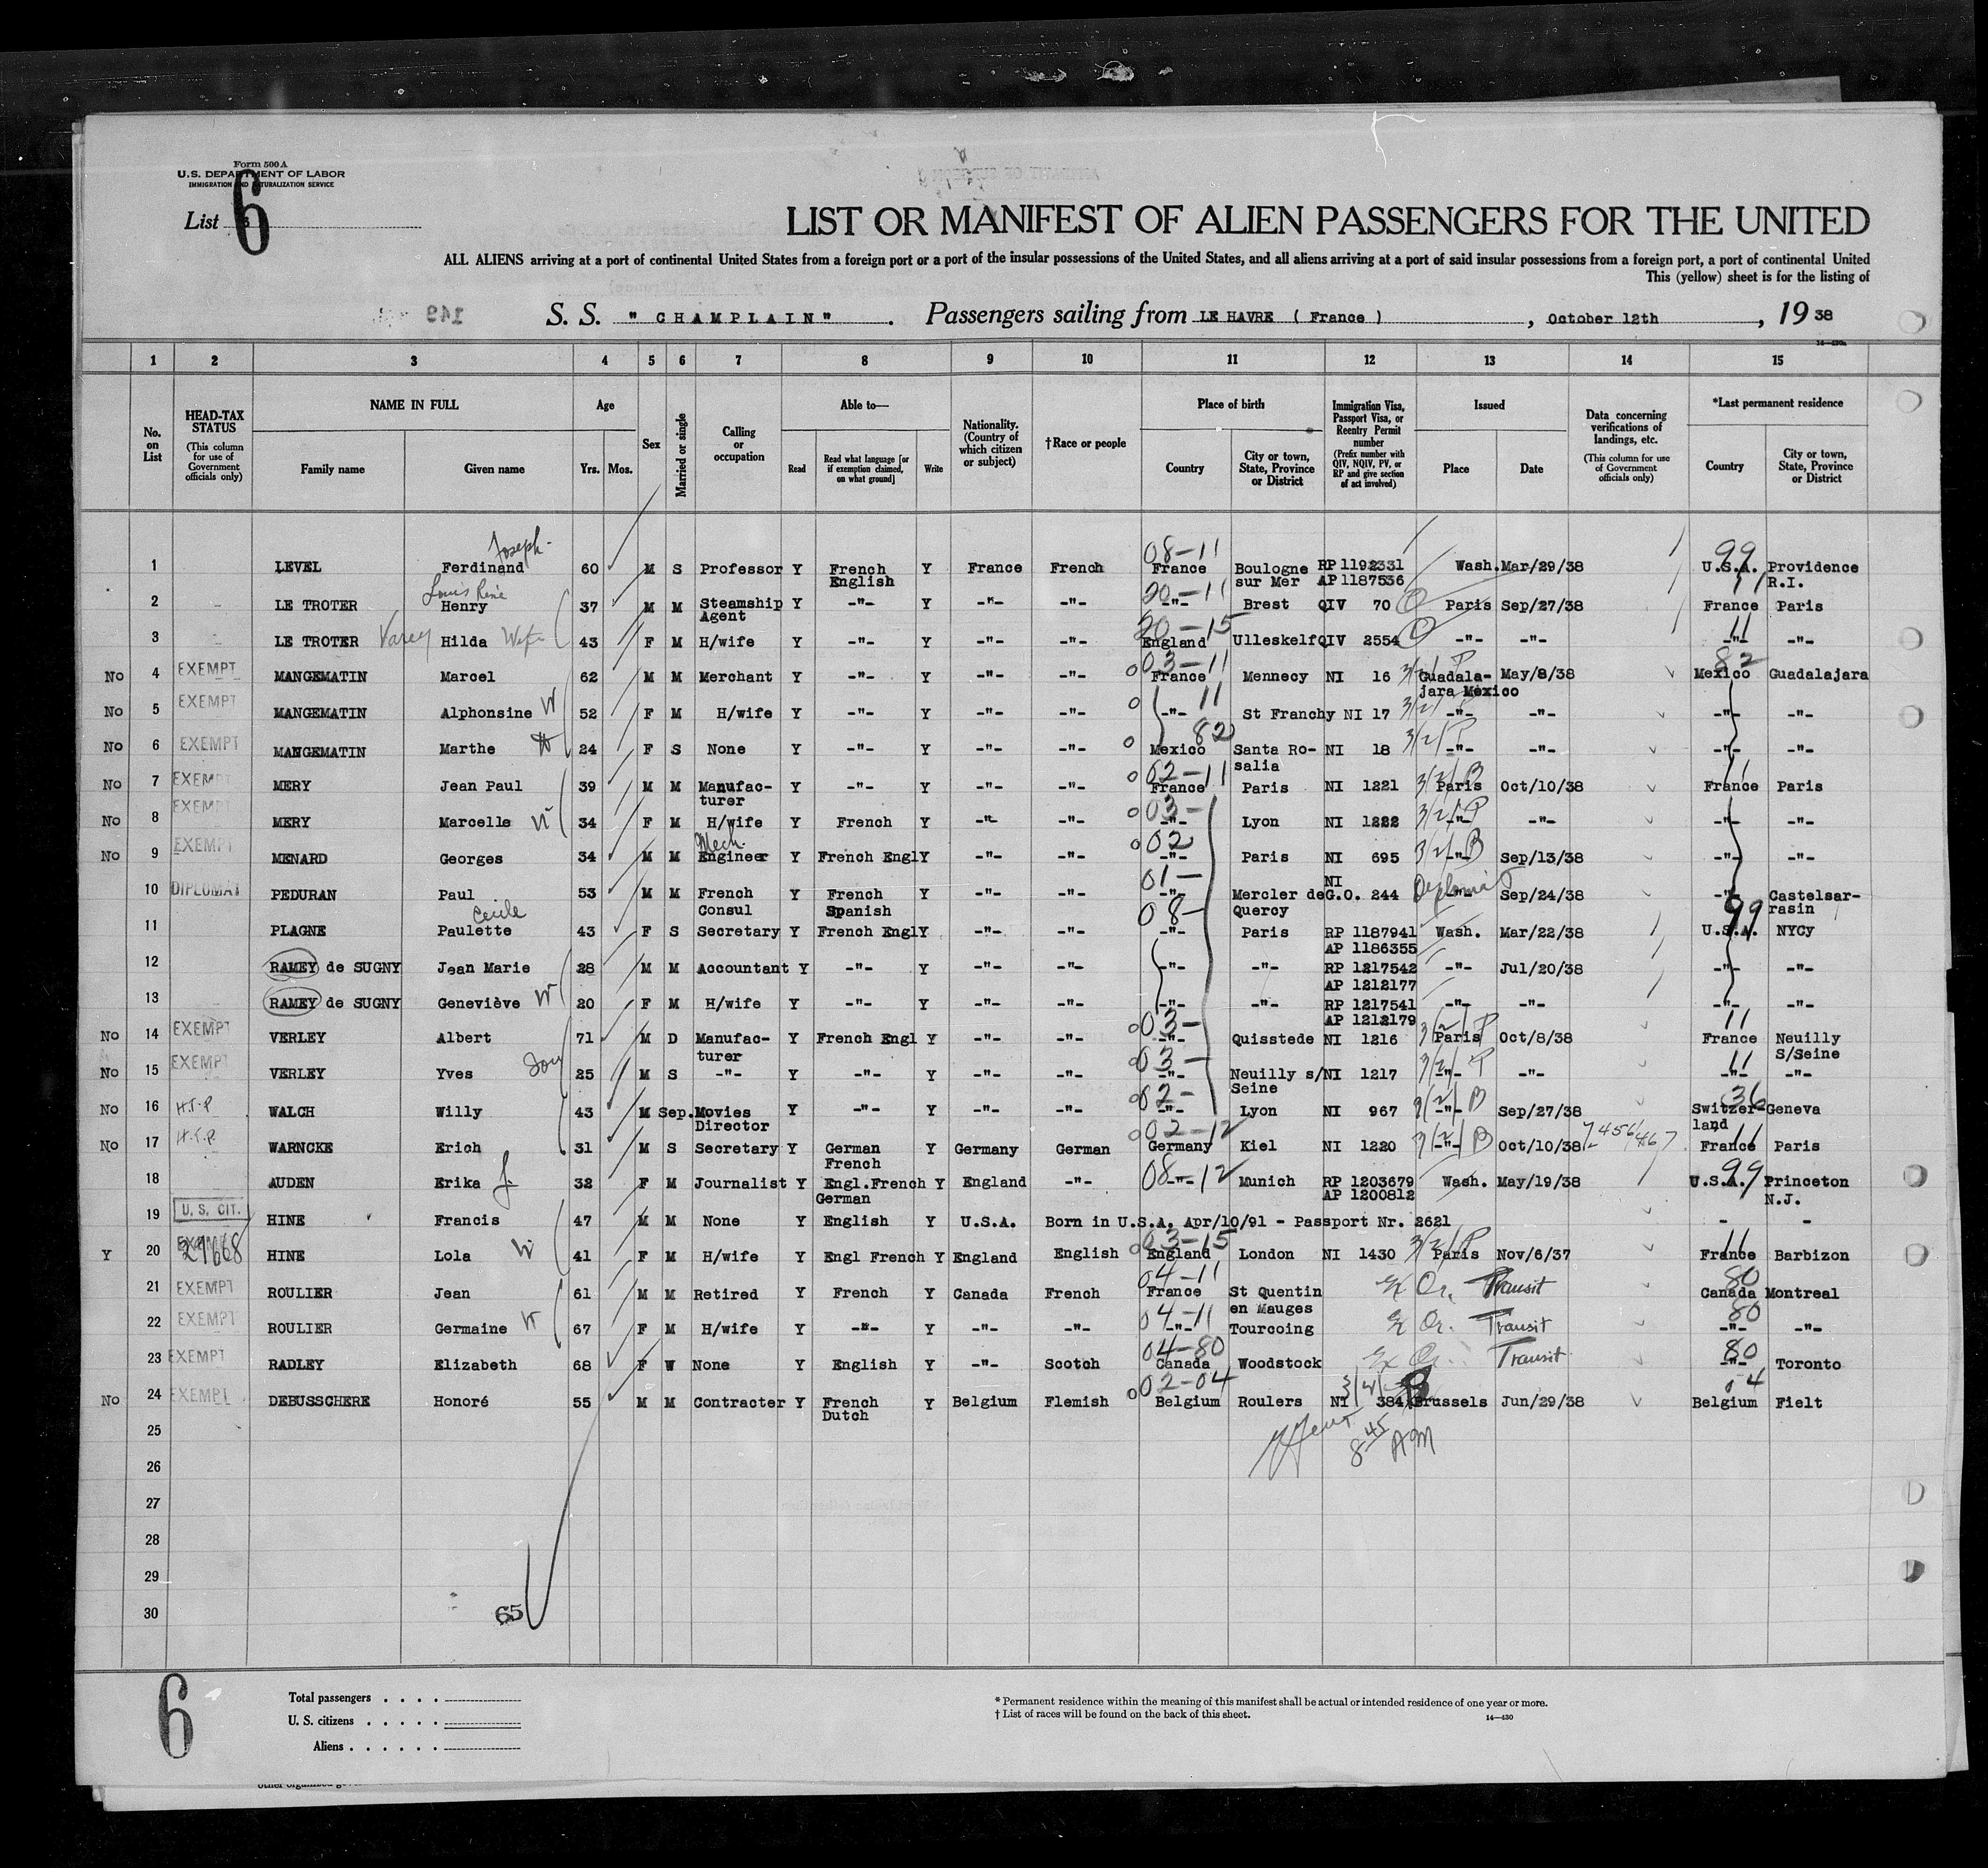 Form 500 A
U.S. DEPARTMENT OF LABOR
IMMIGRATION AND NATURALIZATION SERVICE
List 6
6
LIST OR MANIFEST OF ALIEN PASSENGERS FOR THE UNITED
ALL ALIENS arriving at a port of continental United States from a foreign port or a port of the insular possessions of the United States, and all aliens arriving at a port of said insular possessions from a foreign port, a port of continental United
This (yellow) sheet is for the listing of
149 S. S. "CHAMPLAIN". Passengers sailing from LE HAVRE (France), October 12th, 19 38
1 2 3 4 5 6 7 8 9 10 11 12 13 14 15
No. on List
HEAD-TAX STATUS (This column for use of Government officials only)
NAME IN FULL Family name Given name
Age Yrs. Mos.
Sex
Married or single
Calling or occupation
Able to— Read Read what language [or if exemption claimed, on what ground] Write
Nationality. (Country of which citizen or subject)
†Race or people
Place of birth Country City or town, State, Province or District
Immigration Visa, Passport Visa, or Reentry Permit number (Prefix number with QIV, NQIV, PV, or RP and give section of act involved)
Issued Place Date
Data concerning verifications of landings, etc. (This column for use of Government officials only)
*Last permanent residence Country City or town, State, Province or District
1 LEVEL Ferdinand Joseph- 60 M S Professor Y French English Y France French 08-11 France Boulogne sur Mer RP 1192331 AP 1187536 Wash. Mar/29/38 99 U.S.A. Providence R.I.
2 LE TROTER Louis René Henry 37 M M Steamship Agent Y -"- Y -"- -"- 20-11 -"- Brest QIV 70 Paris Sep/27/38 11 France Paris
3 LE TROTER Varey Hilda Wife 43 F M H/wife Y -"- Y -"- -"- 20-15 England Ulleskelf QIV 2554 -"- -"- 11 -"- -"-
No 4 EXEMPT MANGEMATIN Marcel 62 M M Merchant Y -"- Y -"- -"- 03-11 France Mennecy NI 16 3/2/P Guadala-jara Mexico May/8/38 82 Mexico Guadalajara
No 5 EXEMPT MANGEMATIN Alphonsine W 52 F M H/wife Y -"- Y -"- -"- 11 -"- St Franchy NI 17 3/2/ -"- -"- -"- -"-
No 6 EXEMPT MANGEMATIN Marthe 24 F S None Y -"- Y -"- -"- 82 Mexico Santa Ro-salia NI 18 3/2/P -"- -"- -"- -"-
No 7 EXEMPT MERY Jean Paul 39 M M Manufac-turer Y -"- Y -"- -"- 02-11 France Paris NI 1221 3/2/B Paris Oct/10/38 11 France Paris
No 8 EXEMPT MERY Marcelle W 34 F M H/wife Y French Y -"- -"- 03- -"- Lyon NI 1222 3/2/P -"- -"- -"- -"-
No 9 EXEMPT MENARD Georges 34 M M Mech. Engineer Y French Engl Y -"- -"- 02 -"- Paris NI 695 3/2/B -"- Sep/13/38 -"- -"-
10 DIPLOMAT PEDURAN Paul 53 M M French Consul Y French Spanish Y -"- -"- 01- -"- Mercler de Quercy NI G.O. 244 Diplomat -"- Sep/24/38 -"- Castelsar-rasin
11 PLAGNE Cecile Paulette 43 F S Secretary Y French Engl Y -"- -"- 08- -"- Paris RP 1187941 AP 1186355 Wash. Mar/22/38 99 U.S.A. NYCy
12 RAMEY de SUGNY Jean Marie 28 M M Accountant Y -"- Y -"- -"- -"- -"- RP 1217542 AP 1212177 -"- Jul/20/38 -"- -"-
13 RAMEY de SUGNY Geneviève W 20 F M H/wife Y -"- Y -"- -"- -"- -"- RP 1217541 AP 1212179 -"- -"- -"- -"-
No 14 EXEMPT VERLEY Albert 71 M D Manufac-turer Y French Engl Y -"- -"- 03- -"- Quisstede NI 1216 3/2/P Paris Oct/8/38 11 France Neuilly S/Seine
No 15 EXEMPT VERLEY Yves Son 25 M S -"- Y -"- Y -"- -"- 03- -"- Neuilly s/Seine NI 1217 3/2/P -"- -"- 11 -"- -"-
No 16 H.T-P WALCH Willy 43 M Sep. Movies Director Y -"- Y -"- -"- 02- -"- Lyon NI 967 3/2/B -"- Sep/27/38 36 Switzer-land Geneva
No 17 H.T.P. WARNCKE Erich 31 M S Secretary Y German French Y Germany German 02-12 Germany Kiel NI 1220 3/2/B -"- Oct/10/38 11 France Paris
18 AUDEN Erika J. 32 F M Journalist Y Engl.French German Y England -"- 08-12 -"- Munich RP 1203679 AP 1200812 Wash. May/19/38 99 U.S.A. Princeton N.J.
19 U. S. CIT. HINE Francis 47 M M None Y English Y U.S.A. Born in U.S.A. Apr/10/91 - Passport Nr. 2621 - -
Y 20 EXEMPT HINE Lola W 41 F M H/wife Y Engl French Y England English 03-15 England London NI 1430 3/2/P Paris Nov/6/37 11 France Barbizon
21 EXEMPT ROULIER Jean 61 M M Retired Y French Y Canada French 04-11 France St Quentin en Mauges Ex Or. Transit 80 Canada Montreal
22 EXEMPT ROULIER Germaine W 67 F M H/wife Y -"- Y -"- -"- 04-11 -"- Tourcoing Ex Or. Transit 80 -"- -"-
23 EXEMPT RADLEY Elizabeth 68 F W None Y English Y -"- Scotch 04-80 Canada Woodstock Ex Or. Transit 80 -"- Toronto
No 24 EXEMPT DEBUSSCHERE Honoré 55 M M Contracter Y French Dutch Y Belgium Flemish 02-04 Belgium Roulers NI 384 3/2/B Brussels Jun/29/38 04 Belgium Fielt
25
8 45 AM
26
27
28
29
30
65
6
Total passengers . . . .
U. S. citizens . . . . .
Aliens . . . . . .
* Permanent residence within the meaning of this manifest shall be actual or intended residence of one year or more.
† List of races will be found on the back of this sheet.
14—430